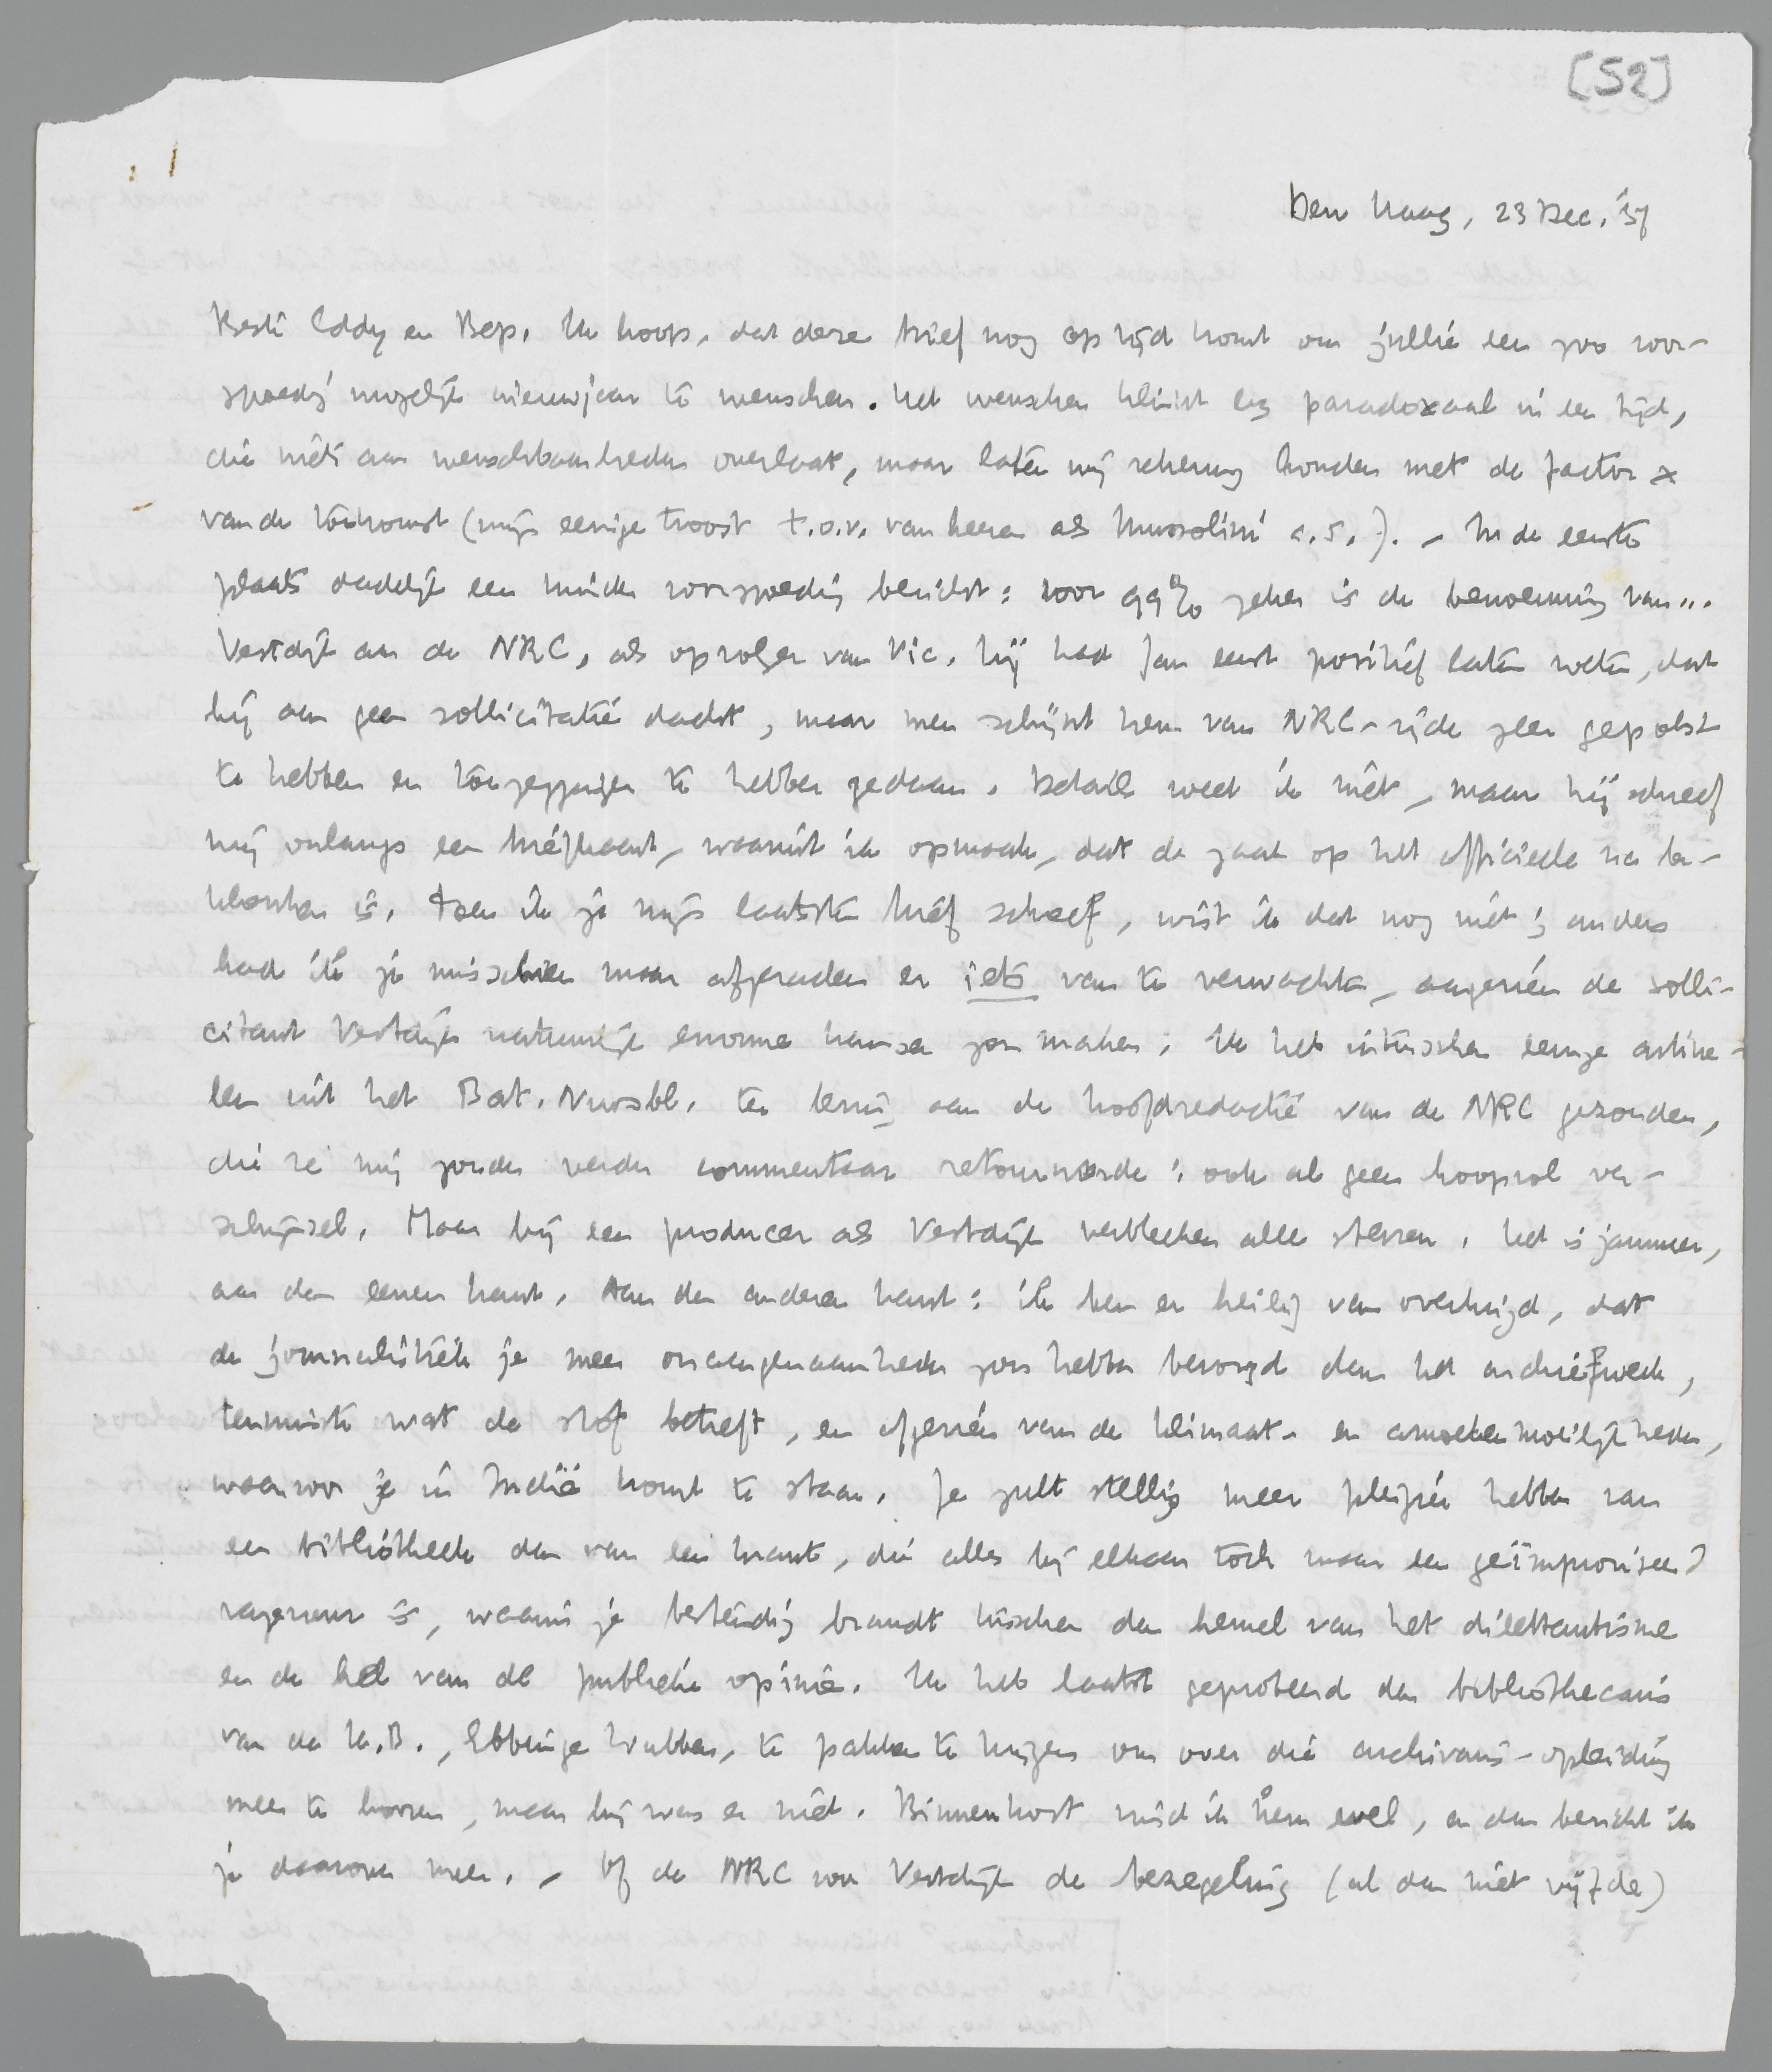 [52]
Den Haag, 23 Dec. '37
Beste Eddy en Bep. Ik hoop, dat deze brief nog op tijd komt om jullie een zoo voor-
spoedig mogelijk nieuwjaar te wenschen. Het wenschen klinkt erg paradoxaal in een tijd,
die niets aan wenschbaarheden overlaat, maar laten wij rekening houden met de factor x
van de toekomst (mijn eenige troost t.o.v. van heeren als Mussolini c.s.). – In de eerste
plaats dadelijk een minder voorspoedig bericht: voor 99% zeker is de benoeming van...
Vestdijk aan de NRC, als opvolger van Vic. Hij had Jan eerst positief laten weten, dat
hij aan geen sollicitatie dacht, maar men schijnt hem van NRC-zijde zeer gepolst
te hebben en toezeggingen te hebben gedaan. Details weet ik niet, maar hij schreef
mij onlangs een briefkaart, waaruit ik opmaak, dat de zaak op het officieele na be-
klonken is. Toen ik je mijn laatsten brief schreef, wist ik dat nog niet; anders
had ik je misschien maar afgeraden er iets van te verwachten, aangezien de solli-
citant Vestdijk natuurlijk enorme kansen zou maken. Ik heb intusschen eenige artike-
len uit het Bat. Nwsbl. ter lezing aan de hoofdredactie van de NRC gezonden,
die ze mij zonder verder commentaar retourneerde; ook al geen hoopvol ver-
schijnsel. Maar bij een producer als Vestdijk verbleeken alle sterren. Het is jammer,
aan den eenen kant. Aan den anderen kant: ik ben er heilig van overtuigd, dat
de journalistiek je meer onaangenaamheden zou hebben bezorgd dan het archiefwerk,
tenminste wat de stof betreft, en afgezien van de klimaat- en armoedemoeilijkheden,
waarvoor je in Indië komt te staan. Je zult stellig meer pleizier hebben van
een bibliotheek dan van een krant, die alles bij elkaar toch maar een geïmproviseerd
vagevuur is, waarin je bestendig brandt tusschen den hemel van het dilettantisme
en de hel van de publieke opinie. Ik heb laatst geprobeerd den bibliothecaris
van de K.B., Ebbinge Wubben, te pakken te krijgen om over die archivaris-opleiding
meer te hooren, maar hij was er niet. Binnenkort vind ik hem wel, en dan bericht ik
je daarover meer. – Of de NRC voor Vestdijk de bezegeling (al dan niet vijfde)